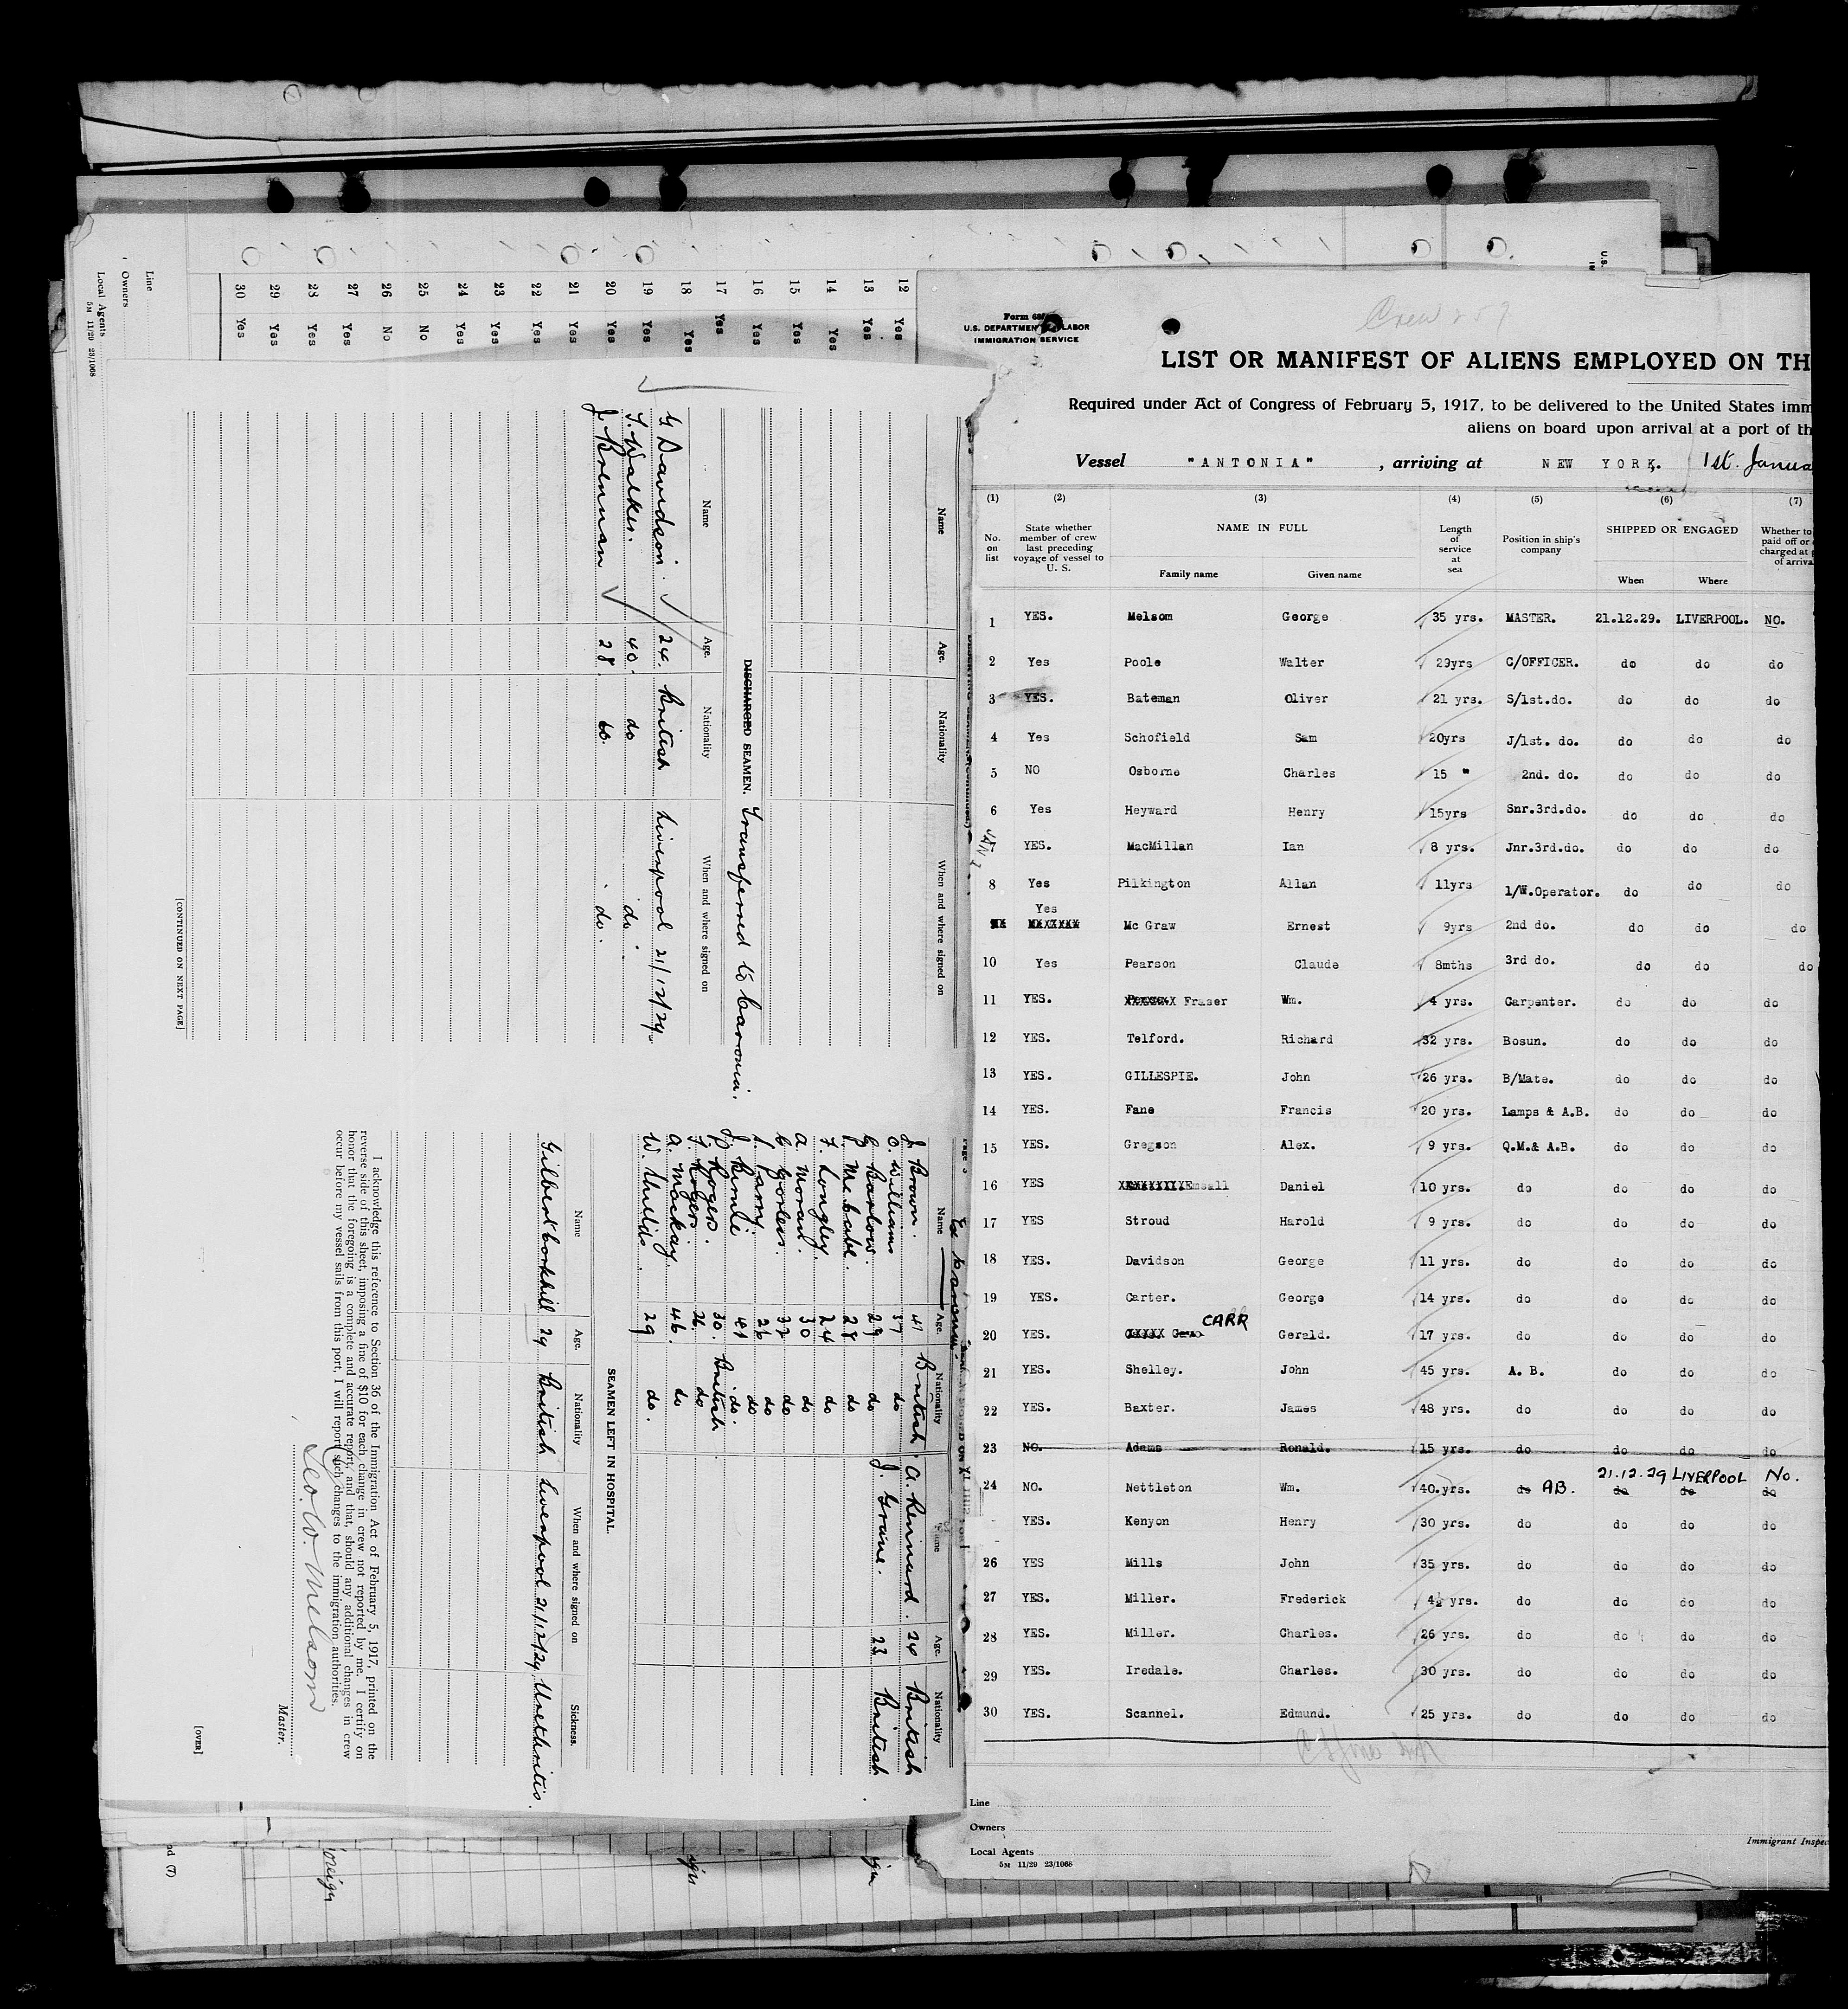 Form 68
U.S. DEPARTMENT LABOR
IMMIGRATION SERVICE
LIST OR MANIFEST OF ALIENS EMPLOYED ON TH
Required under Act of Congress of February 5, 1917, to be delivered to the United States imm
aliens on board upon arrival at a port of th
Vessel "ANTONIA" , arriving at NEW YORK. 1st. Janua
(1) (2) (3) (4) (5) (6) (7)
No. on list State whether member of crew last preceding voyage of vessel to U. S. NAME IN FULL Length of service at sea Position in ship's company SHIPPED OR ENGAGED Whether to paid off or charged at of arriva
Family name Given name When Where
1 YES. Melsom George 35 yrs. MASTER. 21.12.29. LIVERPOOL. NO.
2 Yes Poole Walter 29yrs C/OFFICER. do do do
3 YES. Bateman Oliver 21 yrs. S/1st.do. do do do
4 Yes Schofield Sam 20yrs J/1st. do. do do do
5 NO Osborne Charles 15 " 2nd. do. do do do
6 Yes Heyward Henry 15yrs Snr.3rd.do. do do do
YES. MacMillan Ian 8 yrs. Jnr.3rd.do. do do do
8 Yes Pilkington Allan 11yrs 1/W.Operator. do do do
Yes
Mc Graw Ernest 9yrs 2nd do. do do do
10 Yes Pearson Claude 8mths 3rd do. do do do
11 YES. Fraser Wm. 4 yrs. Carpenter. do do do
12 YES. Telford. Richard 32 yrs. Bosun. do do do
13 YES. GILLESPIE. John 26 yrs. B/Mate. do do do
14 YES. Fane Francis 20 yrs. Lamps & A.B. do do do
15 YES. Gregson Alex. 9 yrs. Q.M.& A.B. do do do
16 YES Emsall Daniel 10 yrs. do do do do
17 YES Stroud Harold 9 yrs. do do do do
18 YES. Davidson George 11 yrs. do do do do
19 YES. Carter. George 14 yrs. do do do do
20 YES. CARR Gerald. 17 yrs. do do do do
21 YES. Shelley. John 45 yrs. A. B. do do do
22 YES. Baxter. James 48 yrs. do do do do
23 NO. Adams Ronald. 15 yrs. do do do do
21.12.29 LIVERPOOL No.
24 NO. Nettleton Wm. 40.yrs. do AB. do do do
YES. Kenyon Henry 30 yrs. do do do do
26 YES Mills John 35 yrs. do do do do
27 YES. Miller. Frederick 4½ yrs. do do do do
28 YES. Miller. Charles. 26 yrs. do do do do
29 YES. Iredale. Charles. 30 yrs. do do do do
30 YES. Scannel. Edmund. 25 yrs. do do do do
Line
Owners
Local Agents
5M 11/29 23/1068
Immigrant Inspec
12 Yes
13 Yes
14 Yes
15 Yes
16 Yes
17 Yes
18 Yes
19 Yes
20 Yes
21 Yes
22 Yes
23 Yes
24 Yes
25 No
26 No
27 Yes
28 Yes
29 Yes
30 Yes
Line
Owners
Local Agents
5M 11/29 23/1068
Name Age. Nationality When and where signed on
DISCHARGED SEAMEN. Transferred to Carronia.
Name Age. Nationality When and where signed on
G Davidson. 24. British Liverpool 21/12/29
T. Walker. 40. do do.
J. Brennan 28. do. do.
[CONTINUED ON NEXT PAGE]
Name Age. Nationality Name Age. Nationality
J. Brown. 47 British A. Rennard. 24 British
O. Williams 37 do J. Graine. 23 British
G Barlow. 29 do
P. McCabe. 28 do
F. Longley 24 do
A. Moran. 30 do
C. Gorless. 32 do
J. Parry. 26 do
J. Birnie 41 do.
P. Rogers. 30. British
F. Rogers 26. do
A. Mackay. 46. do
W. Shields. 29 do.
SEAMEN LEFT IN HOSPITAL.
Name Age. Nationality When and where signed on Sickness.
Gilbert Corkhill 29 British Liverpool 21/12/29. Urethritis.
I acknowledge this reference to Section 36 of the Immigration Act of February 5, 1917, printed on the
reverse side of this sheet, imposing a fine of $10 for each change in crew not reported by me. I certify on
honor that the foregoing is a complete and accurate report, and that, should any additional changes in crew
occur before my vessel sails from this port, I will report such changes to the immigration authorities.
Geo. W. Melsom
Master.
[OVER]
nd (7)
oreign